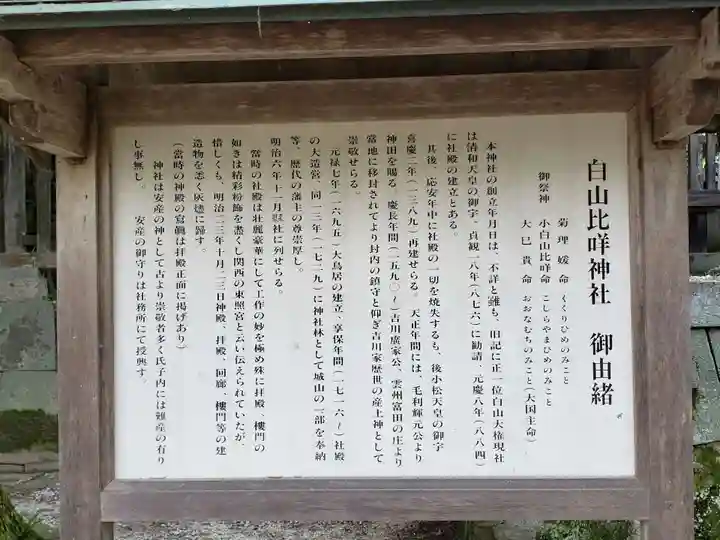 白山比咩神社 御由緒
御祭神 菊理媛命 くくりひめのみこと
小白山比咩命 こしらやまひめのみこと
大巳貴命 おおなむちのみこと(大国主命)
本神社の創立年月日は、不詳と雖も、旧記に正一位白山大権現社
は清和天皇の御宇、貞観一八年(八七六)に勧請、元慶八年(八八四)
に社殿の建立とある。
其後、応安年中に社殿の一切を焼失するも、後小松天皇の御宇
喜慶二年(一三八九)再建せらる。天正年間には、毛利輝元公より
神田を賜る。慶長年間(一五九〇〜)吉川廣家公、雲州富田の庄より
當地に移封されてより封内の鎮守と仰ぎ吉川家歴世の産土神として
崇敬せらる。
元禄七年(一六九五)大鳥居の建立、享保年間(一七一六〜)社殿
の大造営、同一三年(一七二九)に神社林として城山の一部を奉納
等、歴代の藩主の尊崇厚し。
明治六年十一月縣社に列せらる。
當時の社殿は壮麗豪華にして工作の妙を極め殊に拝殿、樓門の
如きは精彩粉飾を盡くし関西の東照宮と云い伝えられていたが、
惜しくも、明治二三年十月二三日神殿、拝殿、回廊、樓門等の建
造物を悉く灰燼に歸す。
(當時の神殿の寫眞は拝殿正面に掲げあり)
神社は安産の神として古より崇敬者多く氏子内には難産の有り
し事無し。 安産の御守りは社務所にて授與す。